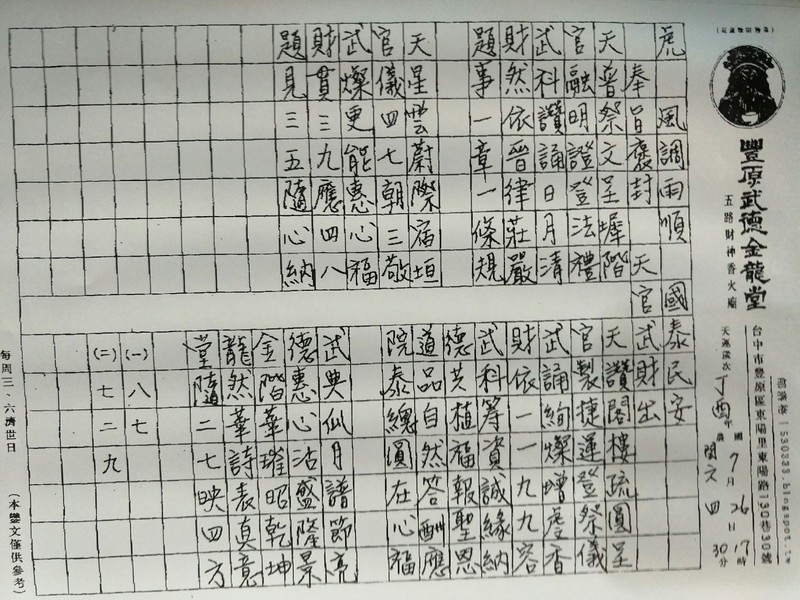 豐原武德金龍堂
五路財神香火廟
台中市豐原區東陽里東陽路130巷30號
1530333.blogspot.tw
天運歲次丁酉年 國7月26日17時30分
農閏六 四
虎 風調雨順 國泰民安
奉旨褒封 天官武財出
天普祭文呈墀階 天讚閣樓疏圓呈
官融明證登法禮 官製捷運登祭儀
武科讚誦日月清 武誦絢燦增虔香
財然依晉律莊嚴 財依一一九九容
題事一章一條規 武科籌資誠緣納
德共植福報聖恩
道品自然答酬應
院泰總圓在心福
天星雲蔚際宿垣 武典仙月譜節亮
官儀四七朝三敬 德惠心沾盤隆景
武燦更能惠心福 金階華璀昭乾坤
財貫三九應四八 龍然華詩表真意
題見三五隨心納 堂隨二七映四方
(一)八七
(二)七二九
每周三、六濟世日
（本鑾文僅供參考）